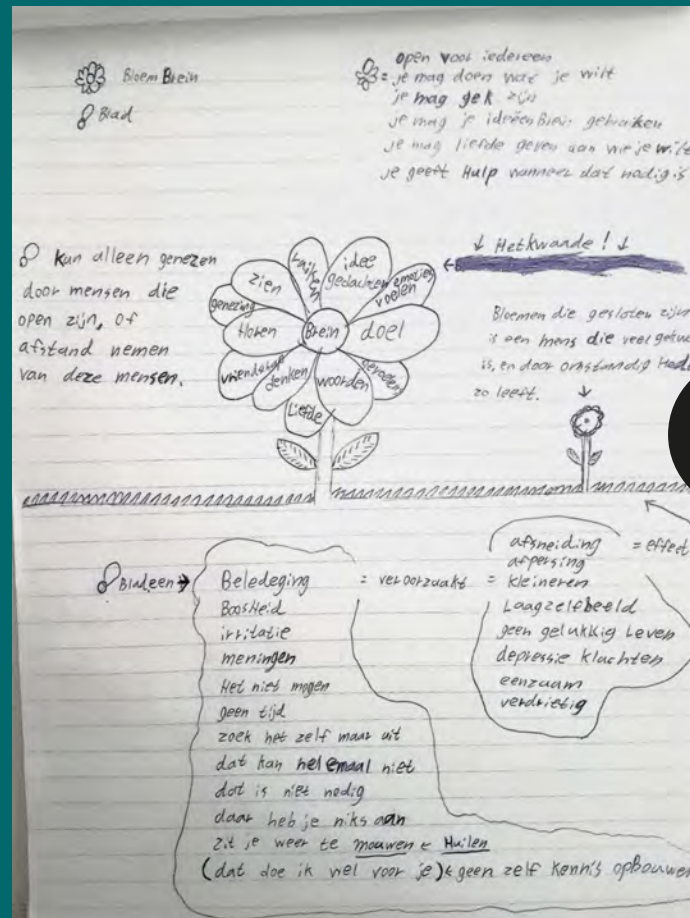 Bloem Brein
Blad
= open voor iedereen
je mag doen wat je wilt
je mag gek zijn
je mag je ideëen Brein gebruiken
je mag liefde geven aan wie je wilt
je geeft Hulp wanneer dat nodig is
kan alleen genezen
door mensen die
open zijn, of
afstand nemen
van deze mensen.
↓ Het kwaade ! ↓
idee
gedachten
emoties
voelen
zien
genezing
Horen
Brein
doel
denken
woorden
Liefde
Bloemen die gesloten zijn
is een mens die veel
is, en door
zo leeft.
Bladeen → Beledeging = veroorzaakt =
BoosHeid
irritatie
meningen
Het niet mogen
geen tijd
zoek het zelf maar uit
dat kan helemaal niet
dat is niet nodig
daar heb je niks aan
zit je weer te mouwen & Huilen
(dat doe ik wel voor je) & geen zelf kennis opbouwen
afsneiding = effect
afpersing
kleineren
Laagzelfbeeld
geen gelukkig Leven
depressie klachten
eenzaam
verdrietig